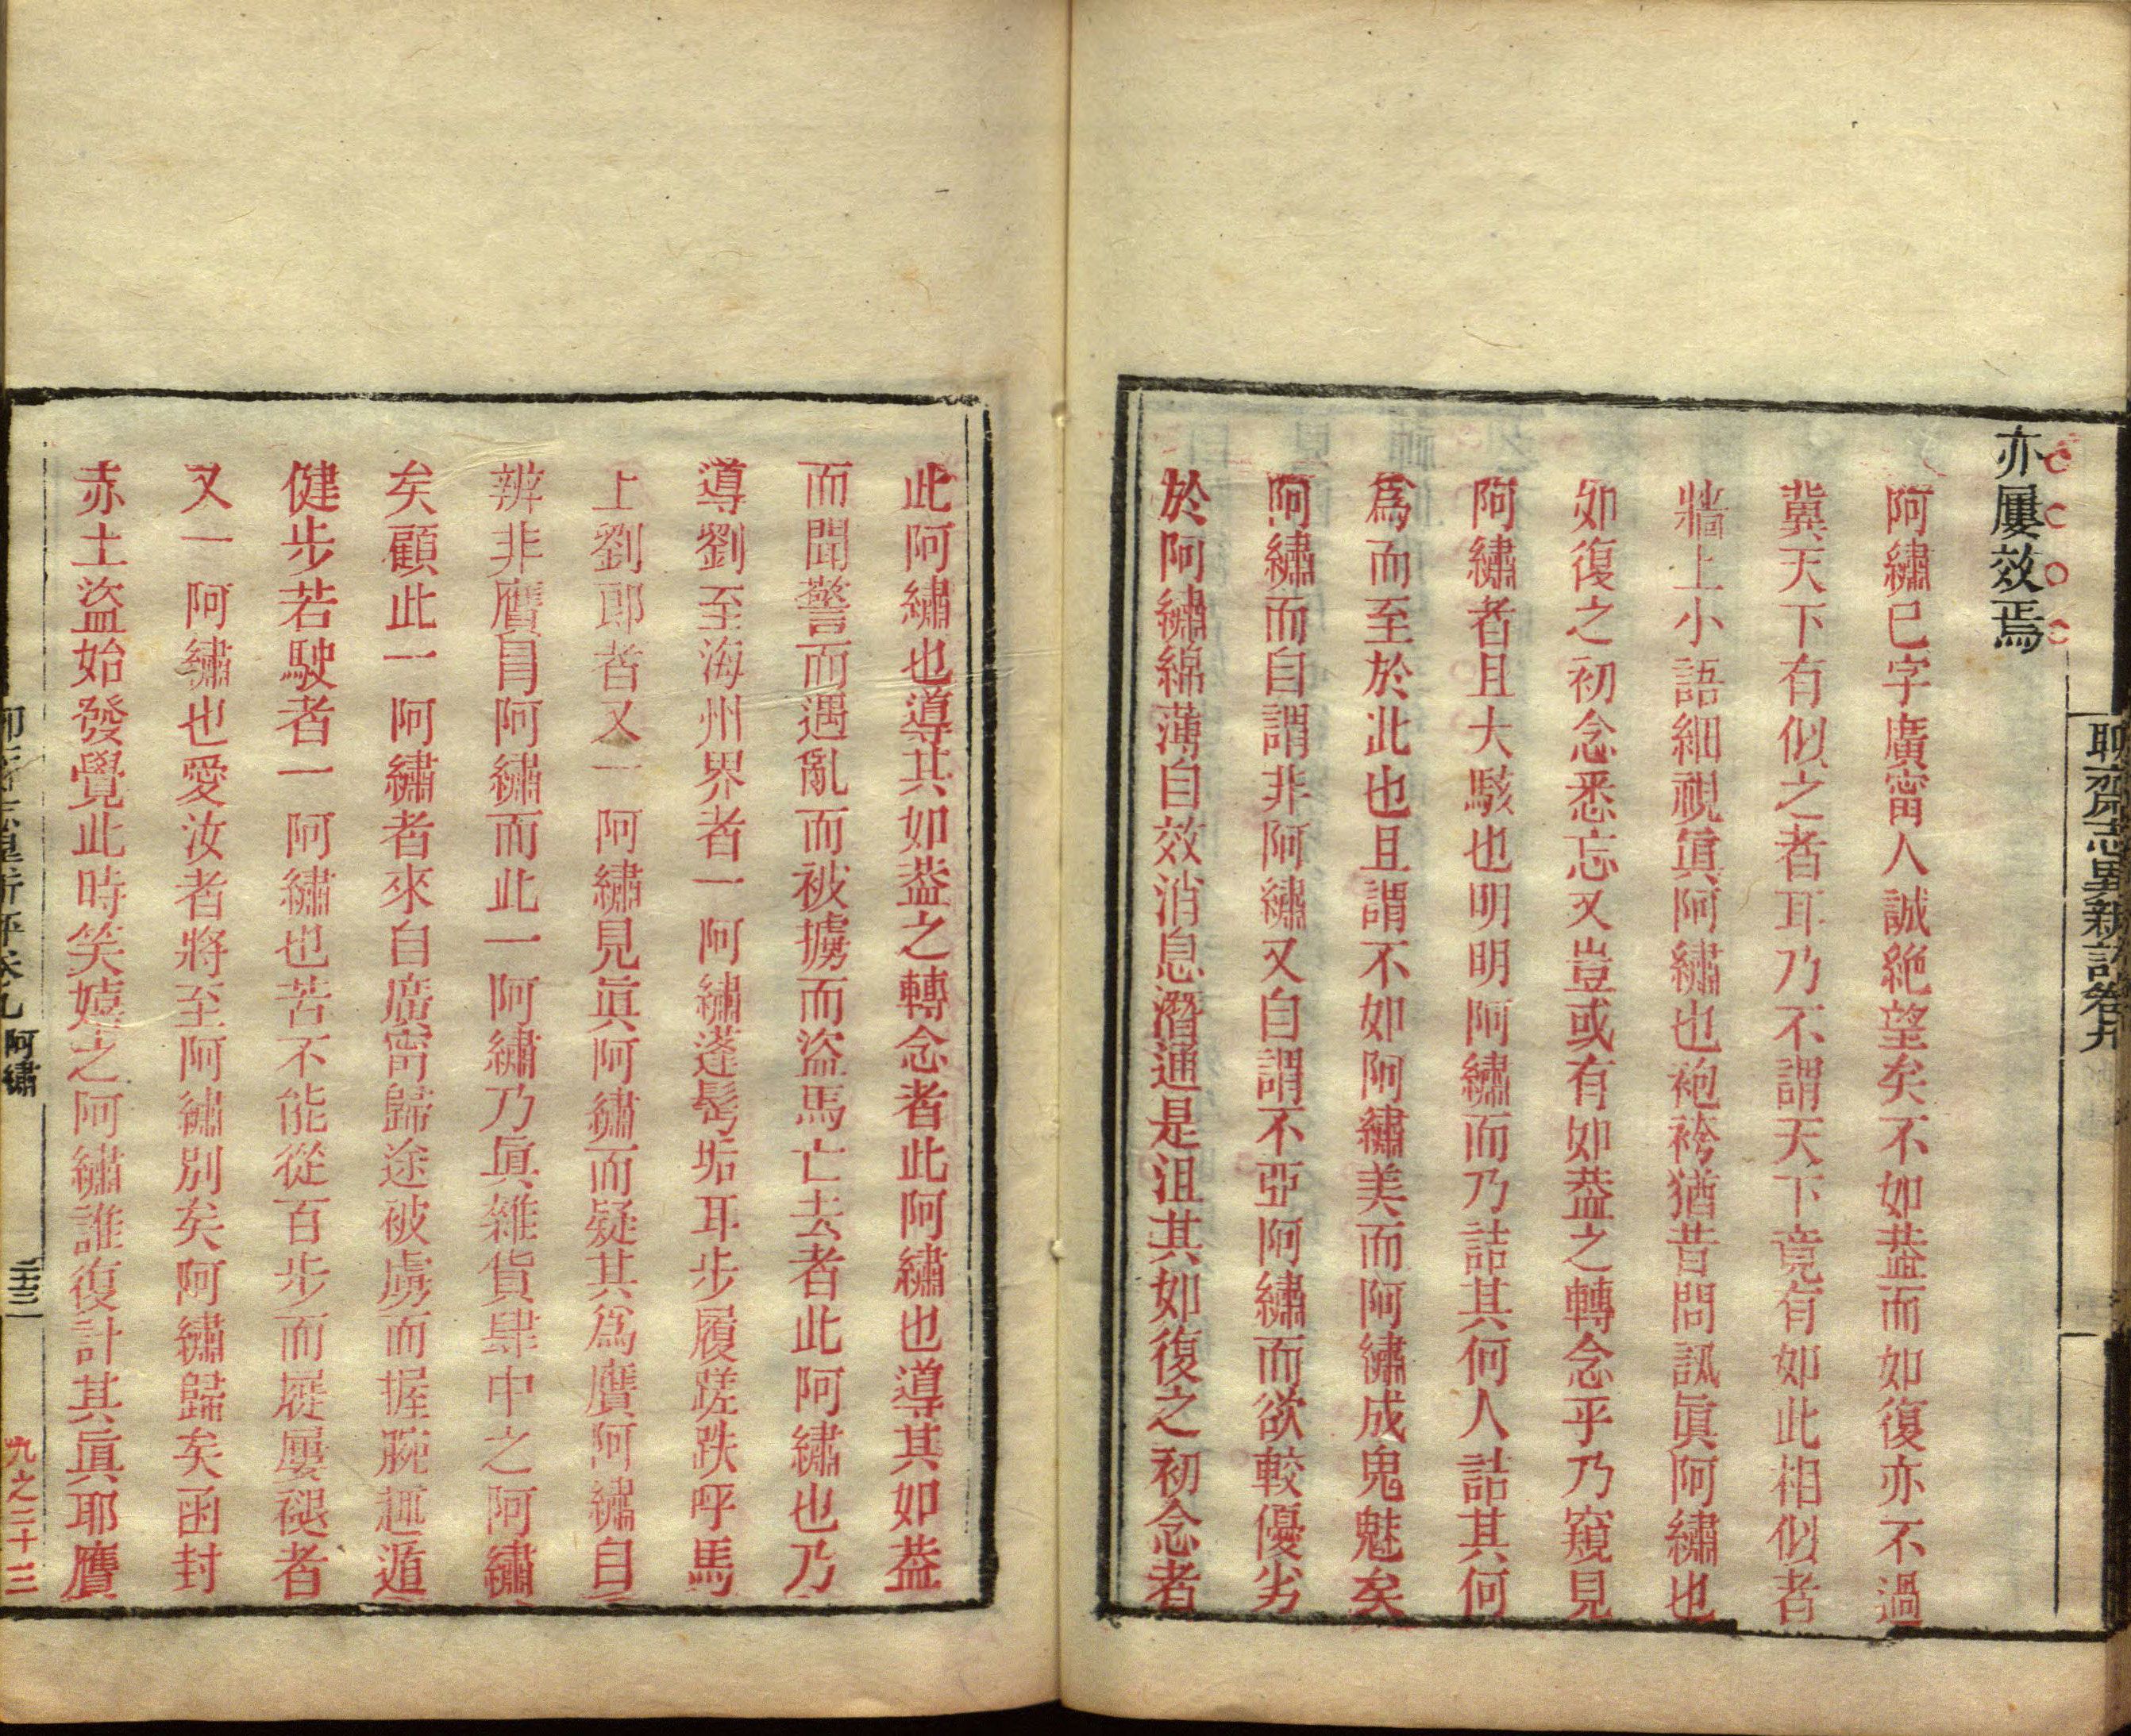 聊齋志異新評卷九
亦屢效焉
阿繡已字廣甯人誠絶望矣不如葢而如復亦不過
冀天下有似之者耳乃不謂天下竟有如此相似者
牆上小語細視眞阿繡也袍袴猶昔問訊眞阿繡也
如復之初念悉忘又豈或有如葢之轉念乎乃窺見
阿繡者且大駭也明明阿繡而乃詰其何人詰其何
爲而至於此也且謂不如阿繡美而阿繡成鬼魅矣
阿繡而自謂非阿繡又自謂不亞阿繡而欲較優劣
於阿繡綿薄自效消息潛通是沮其如復之初念者
此阿繡也導其如葢之轉念者此阿繡也導其如葢
而聞警而遇亂而被擄而盜馬亡去者此阿繡也乃
導劉至海州界者一阿繡蓬髩垢耳步履蹉跌呼馬
上劉郎者又一阿繡見眞阿繡而疑其爲贗阿繡自
辨非贗阿繡而此一阿繡乃眞雜貨肆中之阿繡
矣顧此一阿繡者來自廣甯歸途被虜而握腕趣遁
健步若駛者一阿繡也苦不能從百步而屣屢褪者
又一阿繡也愛汝者將至阿繡別矣阿繡歸矣函封
赤土盜始發覺此時笑嬉之阿繡誰復計其眞耶贗
聊齋志異新評卷九 阿繡 二十三
九之二十三